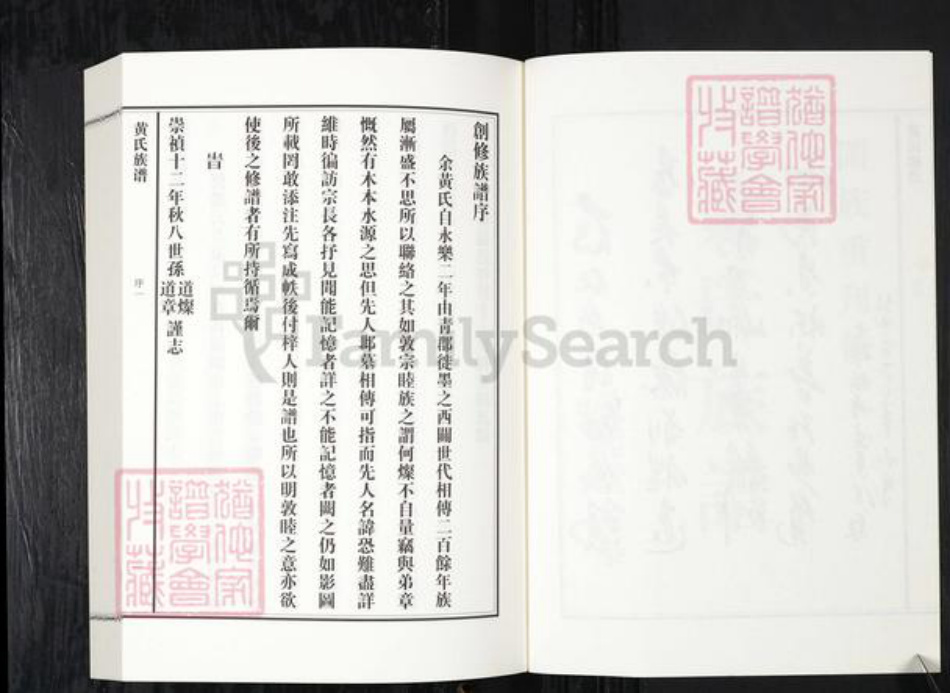 創修族譜序
余黃氏自永樂二年由靑郡徙墨之西關世代相傳二百餘年族
屬漸盛不思所以聯絡之其如敦宗睦族之謂何燦不自量竊與弟章
慨然有木本水源之思但先人邱墓相傳可指而先人名諱恐難盡詳
維時徧訪宗長各抒見聞能記憶者詳之不能記憶者闕之仍如影圖
所載罔敢添注先寫成帙後付梓人則是譜也所以明敦睦之意亦欲
使後之修譜者有所持循焉爾
旹
崇禎十二年秋八世孫道燦道章謹志
黄氏族谱
序一
猶他家
譜學會
收藏
猶他家
譜學會
收藏
FamilySearch